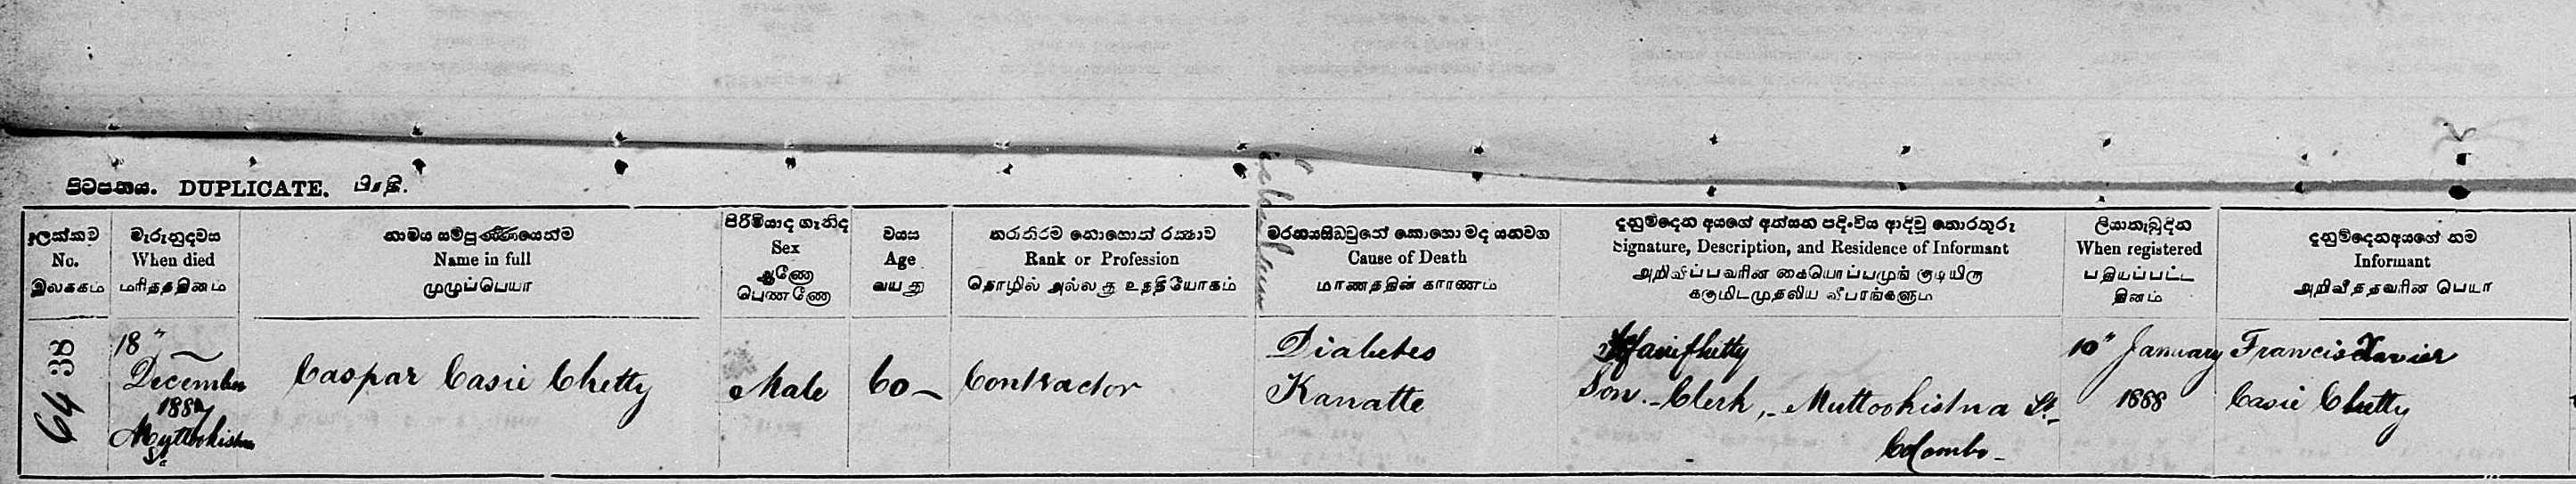 පිටපතය. DUPLICATE. பிரதி.
ලක්කව
No.
இலக்கம்
මැරුනුදවස
When died
மரித்ததினம்
නාමය සම්පූර්ණයෙන්ම
Name in full
முழுப்பெயர்
පිරිමියාද ගැනිද
Sex
ஆணோ
பெண்ணோ
වයස
Age
வயது
තරාතිරම නොහොත් රක්ෂාව
Rank or Profession
தொழில் அல்லது உத்தியோகம்
මරනයසිඩවුනේ කොහොමද යනවග
Cause of Death
மரணத்தின் காரணம்
දනුම්දෙන අයගේ අත්සන පදිංචිය ආදිවූ තොරතුරු
Signature, Description, and Residence of Informant
அறிவிப்பவரின் கையொப்பமுங் குடியிரு
க்குமிடமுதலிய விபரங்களும்
ලියාතැබුදින
When registered
பதியப்பட்ட
தினம்
දනුම්දෙනඅයගේ නම
Informant
அறிவித்தவரின் பெயர்
64 38
18"
December
1887
Muttookistna
St
Caspar Casie Chetty
Male
60
Contractor
Diabetes
Kanatte
Son. Clerk, Muttookistna St.
Colombo
10" January
1888
Francis Xavier
Casie Chetty